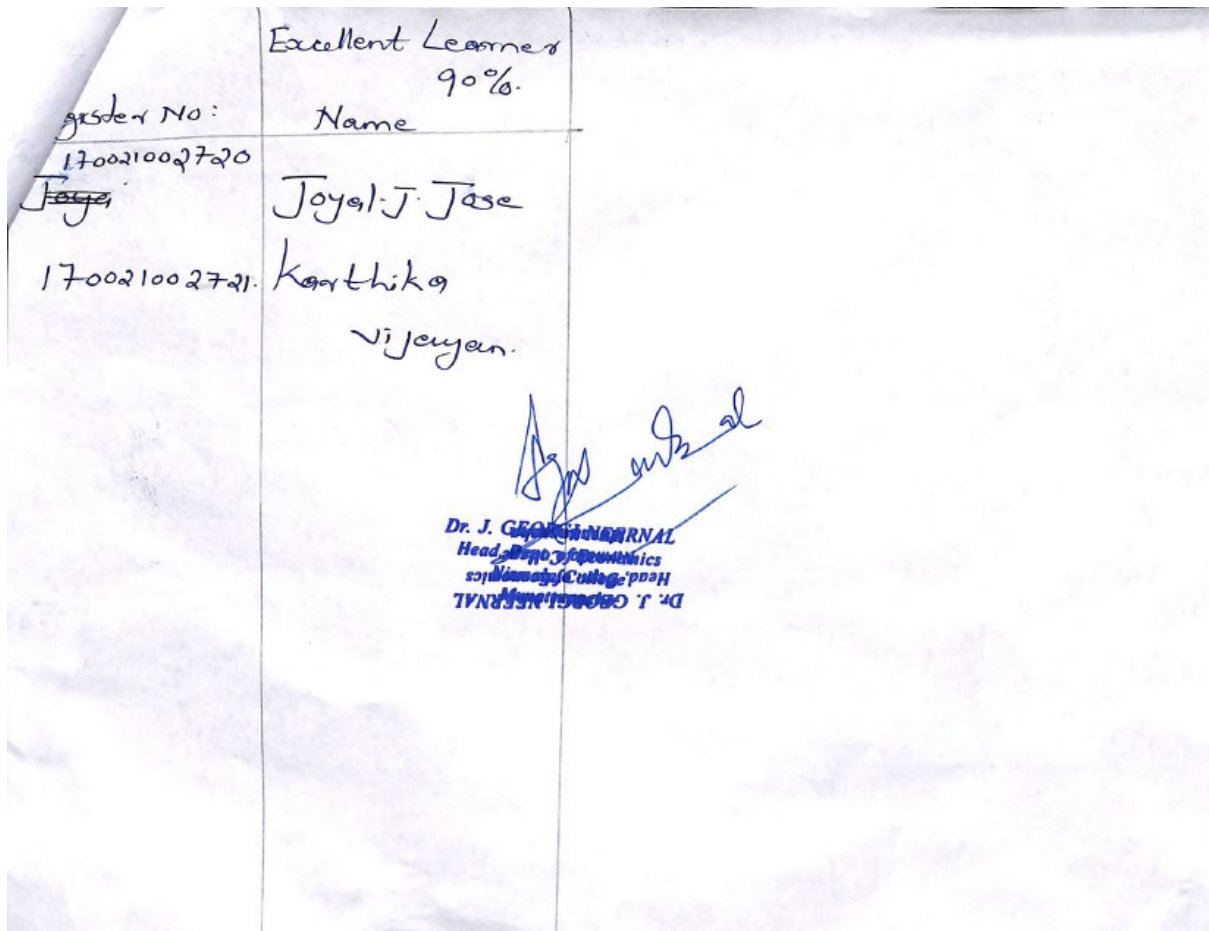 Excellent Learner
90%.
gister No: Name
170021002720
Joyal. J. Jose
170021002721. Karthika
Vijayan.
Dr. J. GEORGI NEERNAL
Head, Dept. of Economics
Nirmala College